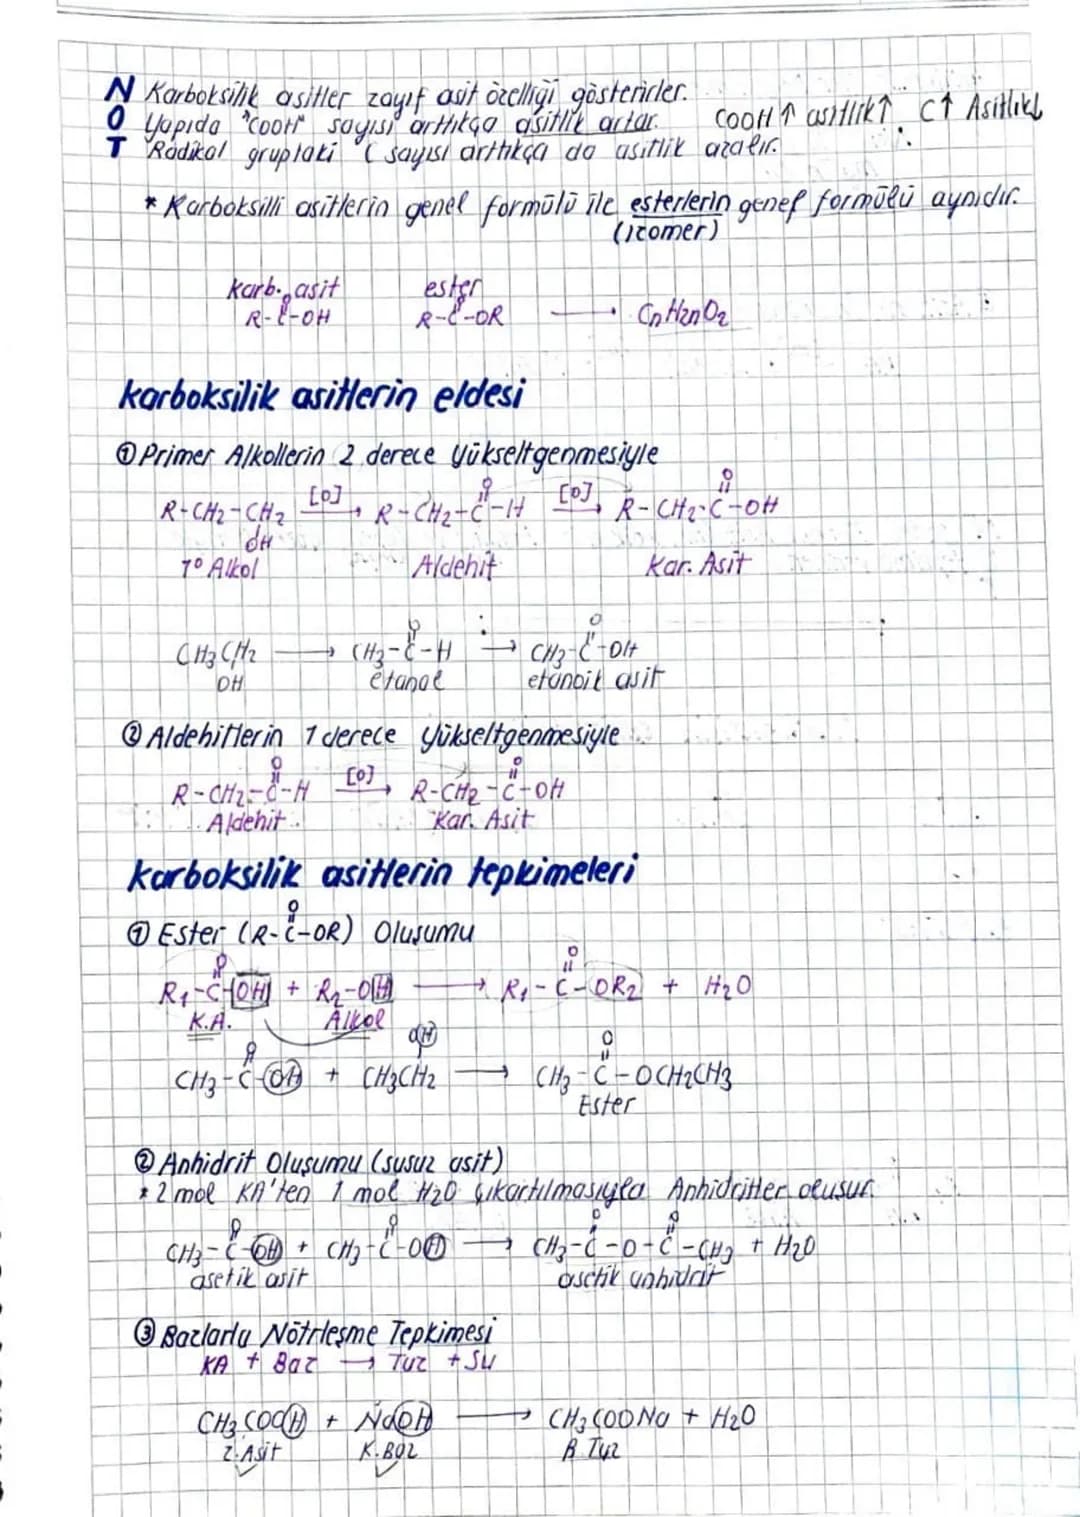 NOT Karboksilik asitler zayıf asit özelliği gösterirler.
Yapıda "COOH" sayısı arttıkça asitlik artar. COOH↑ asitlik↑ C↑ Asitlik↓
Radikal gruptaki C sayısı arttıkça da asitlik azalır.
* Karboksilli asitlerin genel formülü ile esterlerin genel formülü aynıdır.
(izomer)
karb. asit ester
O O
R-C-OH R-C-OR → CnH2nO2
karboksilik asitlerin eldesi
① Primer Alkollerin 2 derece yükseltgenmesiyle
O O
R-CH2-CH2 [O] → R-CH2-C-H [O] → R-CH2-C-OH
OH
1° Alkol Aldehit Kar. Asit
O O
CH3CH2 → CH3-C-H → CH3-C-OH
OH etanal etanoik asit
② Aldehitlerin 1 derece yükseltgenmesiyle
O O
R-CH2-C-H [O] → R-CH2-C-OH
Aldehit Kar. Asit
karboksilik asitlerin tepkimeleri
O
① Ester (R-C-OR) Oluşumu
O O
R1-C-OH + R2-OH → R1-C-OR2 + H2O
K.A. Alkol
O OH O
CH3-C-OH + CH3CH2 → CH3-C-OCH2CH3
Ester
② Anhidrit Oluşumu (susuz asit)
* 2 mol KA'ten 1 mol H2O çıkartılmasıyla Anhidritler oluşur.
O O O O
CH3-C-OH + CH3-C-OH → CH3-C-O-C-CH3 + H2O
asetik asit asetik anhidrit
③ Bazlarla Nötrleşme Tepkimesi
KA + Baz → Tuz + Su
CH3COOH + NaOH → CH3COONa + H2O
Z.Asit K.Baz B.Tuz